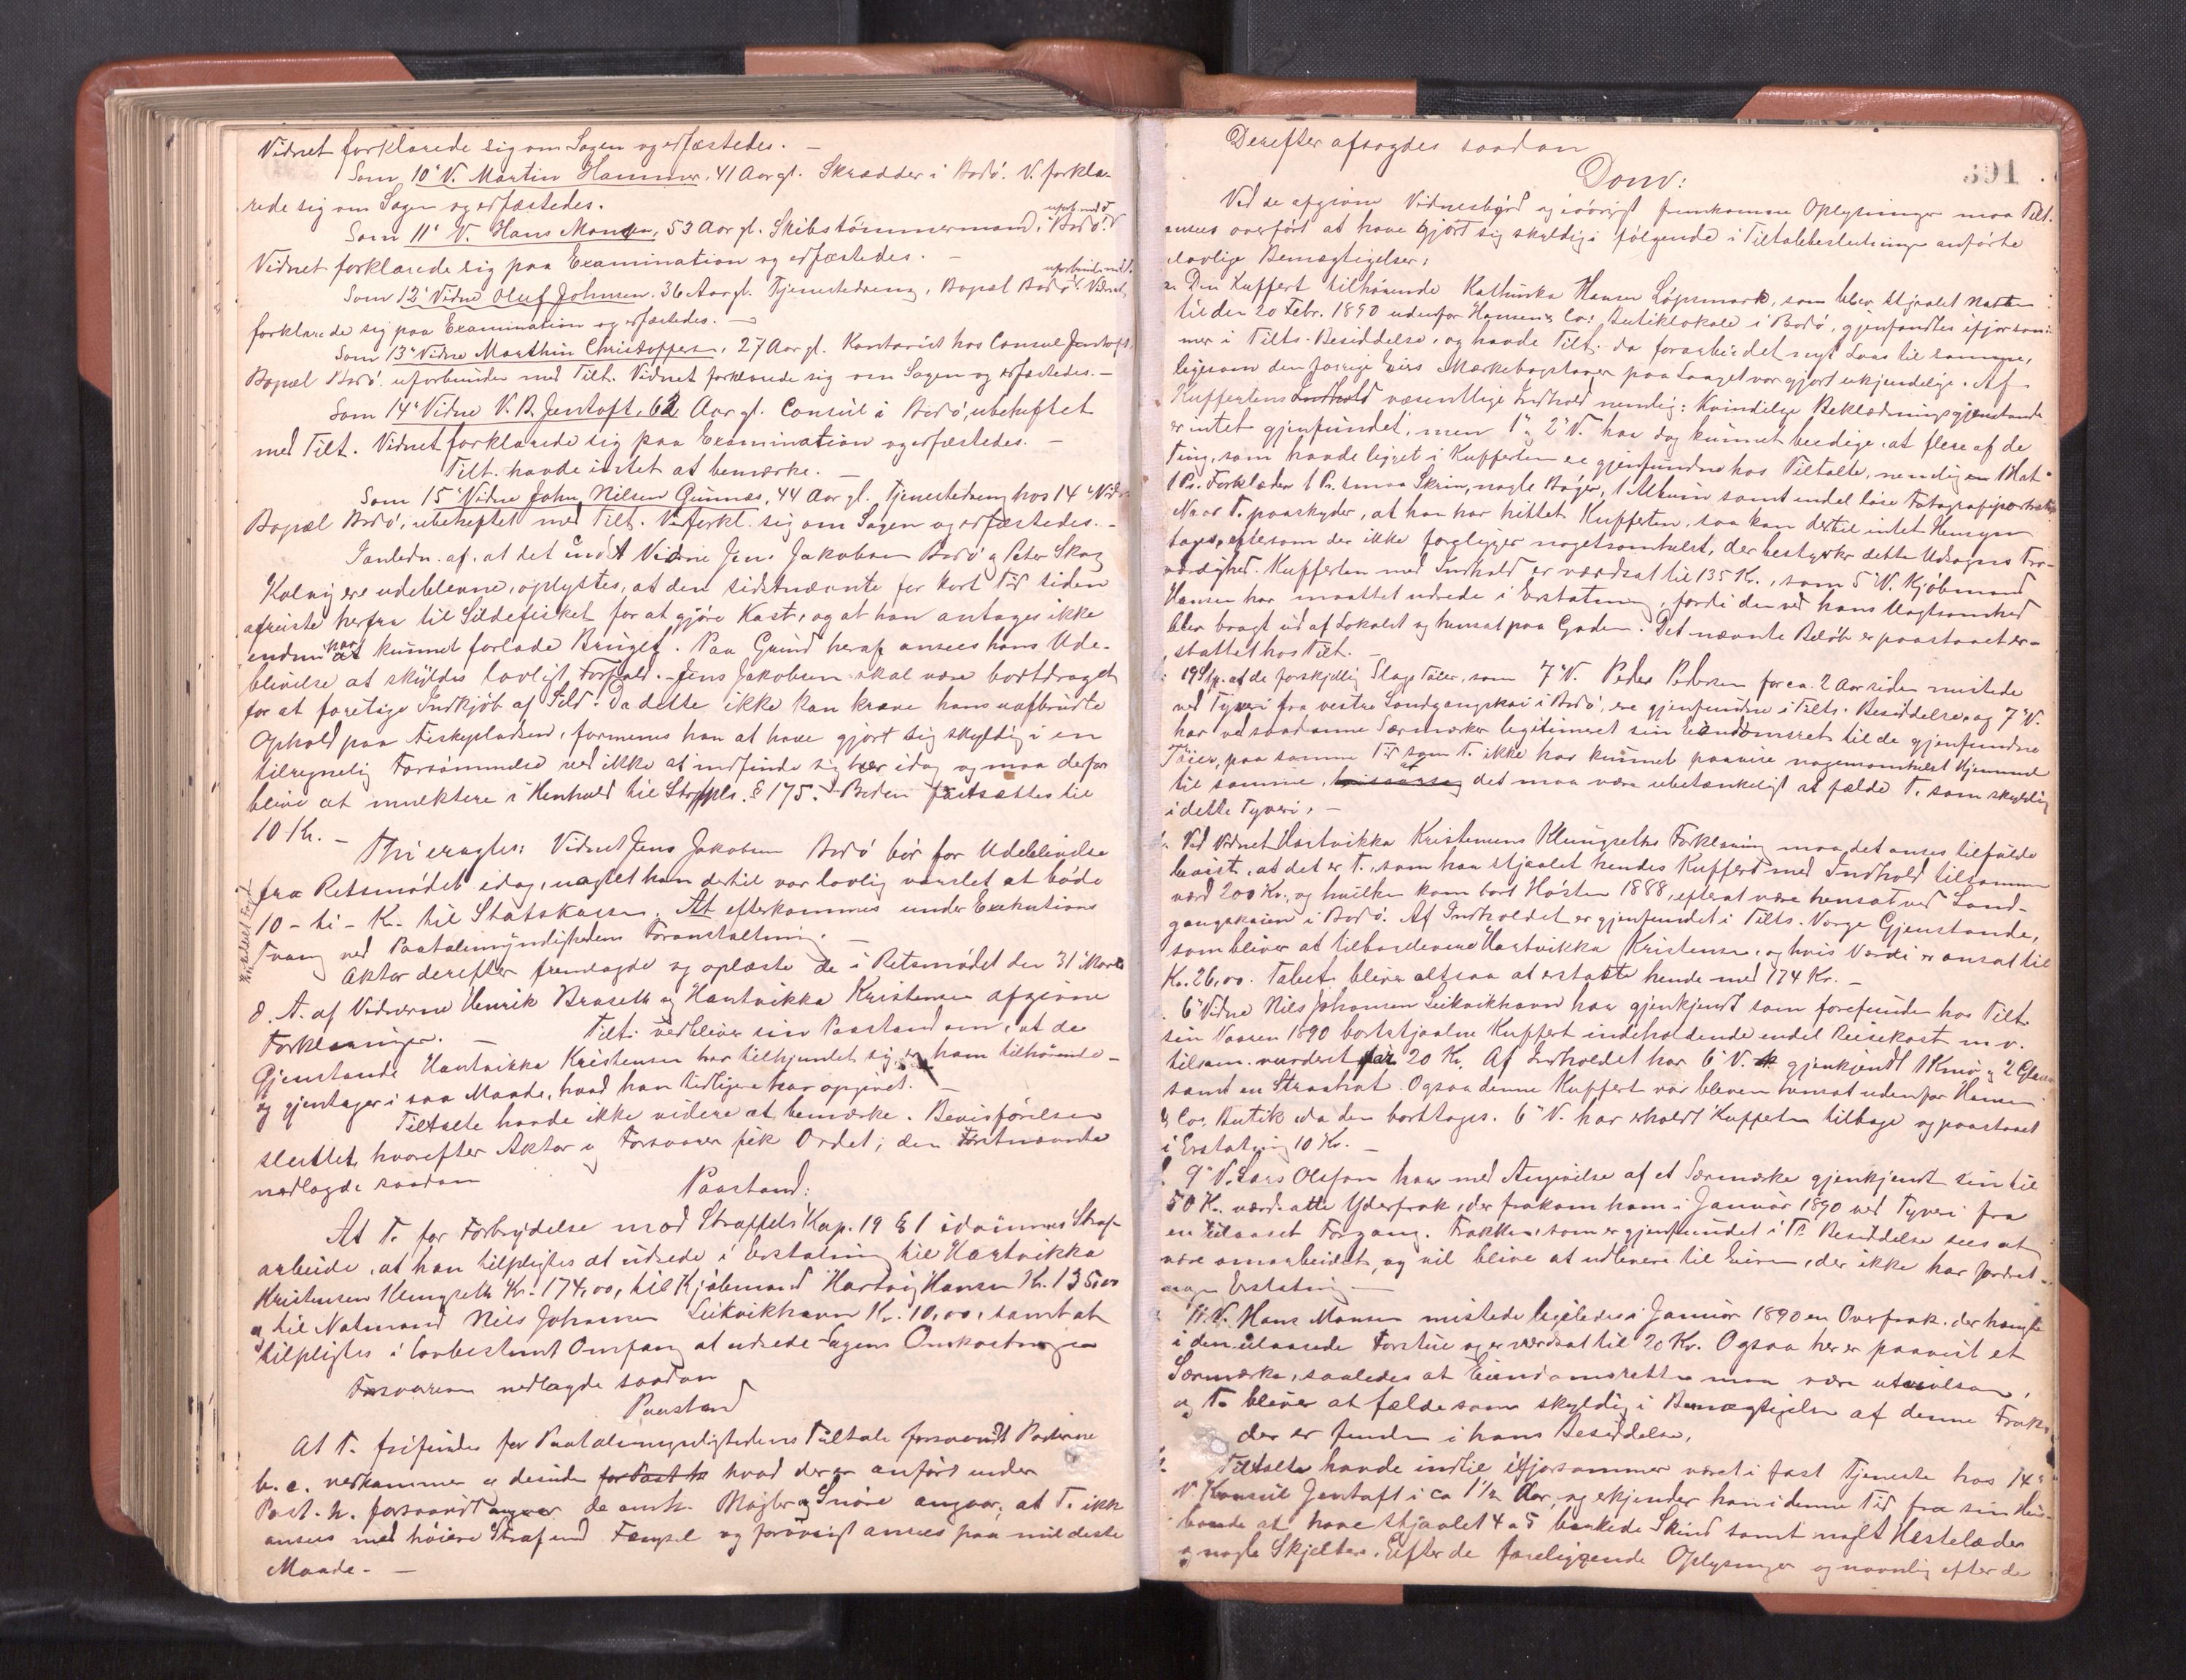 Vidnet forklarede sig om Sagen og edfæstedes. -
Som 10' V. Martin Hammer, 41 Aar gl. Skrædder i Bodø. V. forkla-
rede sig om Sagen og edfæstedes.
uforb. med T.
Som 11' V. Hans Monsen, 53 Aar gl. Skibstömmermand, i Bodø.
Vidnet forklarede sig paa Examination og edfæstedes. -
uforbunden med T.
Som 12' Vidne Oluf Johnsen. 36 Aar gl. Tjenestedreng, Bopæl Bodø. Vidnet
forklarede sig paa Examination og edfæstedes. -
Som 13' Vidne Marthin Christoffersen, 27 Aar gl. Kontorist hos Consul Jentoft,
Bopæl Bodø. uforbunden med Tilt. Vidnet forklarede sig om Sagen og edfæstedes. -
Som 14' Vidne V. B. Jentoft, 62 Aar gl. Consul i Bodø, ubeheftet
med Tilt. Vidnet forklarede sig paa Examination og edfæstedes. -
Tilt. havde intet at bemærke. -
Som 15' Vidne John Nilsen Gunnæs, 44 Aar gl. Tjenestedreng hos 14' Vidne
Bopæl Bodø, ubeheftet med Tilt. V. forkl. sig om Sagen og edfæstedes. -
I anledn. af, at det indst. Vidne Jens Jakobsen Bodø og Peter Skog
Kolvig ere udeblevne, oplystes, at den sidstnævnte for kort Tid siden
afreiste herfra til Sildefisket for at gjöre Kast, og at han antages ikke
endnu har kunnet forlade Bruget. Paa Grund heraf ansees hans Ude-
blivelse at skyldes lovligt Forfald. - Jens Jakobsen skal være bortdraget
for at foretage Indkjöb af Sild. Da dette ikke kan kræve hans uafbrudte
Ophold paa Fiskepladsen, formenes han at have gjort sig skyldig i en
tilregnelig Forsömmelse ved ikke at indfinde sig her idag og maa derfor
blive at mulktere i Henhold til Strfpls. § 175. Boden fastsættes til
10 Kr. -
Thi eragtes: Vidnet Jens Jakobsen Bodø bör for Udeblivelse
fra Retsmödet idag, uagtet han dertil var lovlig varslet at böde
10 - ti - Kr. til Statskassen. At efterkommes under Exekutions
Tvang ved Paatalemyndighedens Foranstaltning. -
Aktor derefter fremlagde og oplæste de i Retsmödet den 31' Marts
d. A. af Vidnerne Henrik Braseth og Hartvikka Kristensen afgivne
Forklaringer. - Tilt. vedbliver sin Paastand om, at de
Gjenstande Hartvikka Kristensen har tilkjendet sig, er ham tilhörende -
og gjentager i saa Maade, hvad han tidligere har opgivet. -
Tiltalte havde ikke videre at bemærke. Bevisförelsen
sluttet, hvorefter Aktor og Forsvarer fik Ordet; den Förstnævnte
nedlagde saadan
Paastand:
At T. for Forbrydelse mod Straffels. Kap. 19 § 1 idömmes Straf-
arbeide, at han tilpligtes at udrede i Erstatning til Hartvikka
Kristensen Klungseth Kr. 174,00, til Kjöbmand Hartvig Hansen Kr. 135,00
og til Notmand Nils Johansen Leikvikhavn Kr. 10,00, samt at
tilpligtes i lovbestemt Omfang at udrede Sagens Omkostninger
Forsvareren nedlagde saadan
Paastand
At T. frifindes for Paatalemyndighedens Tiltale forsaavidt Posterne
b. c. vedkommer og desuden for Post h hvad der er anfört under
Post. h. forsaavidt angaar de omh. Nögler og Snöre angaar, at T. ikke
ansees med höiere Straf end Fængsel og forövrigt ansees paa mildeste
Maade. -
Derefter afsagdes saadan
391
Dom:
Ved de afgivne Vidnesbyrd og iövrigt fremkomne Oplysninger maa Tilt.
ansees overfört at have gjort sig skyldig i fölgende i Tiltalebeslutningen anförte
ulovlige Bemægtigelser:
a. Den Kuffert tilhörende Kathinka Hansen Løpsmark, som blev stjaalet Natten
til den 20 Febr. 1890 udenfor Hansen & Co.s Butiklokale i Bodø, gjenfandtes ifjor som-
mer i Tilts. Besiddelse, og havde Tilt. da forarbeidet nyt Laas til samme,
ligesom den forrige Eiers Mærkebogstaver paa Laaget var gjort ukjendelige. Af
Kuffertens Indhold væsentlige Indhold nemlig: Kvindelige Beklædningsgjenstande
er intet gjenfundet, men 1' og 2' V. har dog kunnet beedige, at flere af de
Ting, som havde ligget i Kufferten ere gjenfundne hos Tiltalte, nemlig en Hat
1 Pr. Forklæder 1 Pr. smaa Skrin, nogle Böger, 1 Album samt endel löse Fotografiportræter
Naar T. paaskyder, at han har hittet Kufferten, saa kan dertil intet Hensyn
tages, eftersom der ikke foreligger nogetsomhelst, der bestyrker dette Udsagns Tro-
værdighed. Kufferten med Indhold er værdsat til 135 Kr., som 5' V. Kjöbmand
Hansen har maattet udrede i Erstatning, fordi den ved hans Uagtsomhed
blev bragt ud af Lokalet og hensat paa Gaden. Det nævnte Belöb er paastaaet er-
stattet hos Tilt. -
19 Stk. af de forskjellig Slags Töier, som 7' V. Peder Pedersen for ca. 2 Aar siden mistede
ved Tyveri fra vestre Landgangskai i Bodø, ere gjenfundne i Tilts. Besiddelse, og 7' V.
har ved saadanne Særmærker legitimeret sin Eiendomsret til de gjenfundne
Töier, paa samme Tid som T. ikke har kunnet paavise nogensomhelst Hjemmel
til samme, at det maa være ubetænkeligt at fælde T. som skyldig
i dette Tyveri. -
Ved Vidnet Hartvikka Kristensens Klungseths Forklaring maa det anses tilfulde
bevist, at det er T., som har stjaalet hendes Kuffert med Indhold tilsammen
værd 200 Kr., og hvilken kom bort Hösten 1888, efterat være hensat ved Land-
gangskaien i Bodø. Af Indholdet er gjenfundet i Tilts. Værge Gjenstande,
som bliver at tilbagelevere Hartvikka Kristensen, og hvis Værdi er ansat til
Kr. 26,00. Tabet bliver altsaa at erstatte hende med 174 Kr. -
6' Vidne Nils Johansen Leikvikhavn har gjenkjendt som forefunden hos Tilt.
sin Vaaren 1890 bortstjaalne Kuffert indeholdende endel Reisekost m. v.
tilsam. vurderet for 20 Kr. Af Indholdet har 6' V. gjenkjendt 1 Kniv og 2 Glas
samt en Straahat. Ogsaa denne Kuffert var bleven hensat udenfor Hansen
& Co.s Butik da den borttoges. 6' V. har erholdt Kufferten tilbage og paastaaet
i Erstatning 10 Kr. -
9' V. Lars Olsen har med Angivelse af et Særmærke gjenkjendt sin til
50 Kr. værdsatte Yderfrak, der frakom ham i Januar 1890 ved Tyveri fra
en ulaaset Forgang. Frakken, som er gjenfundet i Ts. Besiddelse sees at
være omarbeidet, og vil blive at udlevere til Eieren, der ikke har fordret
nogen Erstatning -
11. V. Hans Monsen mistede ligeledes i Januar 1890 en Overfrak, der hængte
i den ulaasede Forstue og er værdsat til 20 Kr. Ogsaa her er paavist et
Særmærke, saaledes at Eiendomsretten maa være utvivlsom,
og T. bliver at fælde som skyldig i Bemægtigelse af denne Frak,
der er funden i hans Besiddelse.
Tiltalte havde indtil ifjorsommer været i fast Tjeneste hos 14'
V. Konsul Jentoft i ca 1½ Aar, og erkjender han i denne Tid fra sin Hus-
bonde at have stjaalet 4 a 5 barkede Skind samt noget Hestelæder
og nogle Skjelter. Efter de foreliggende Oplysninger og navnlig efter de